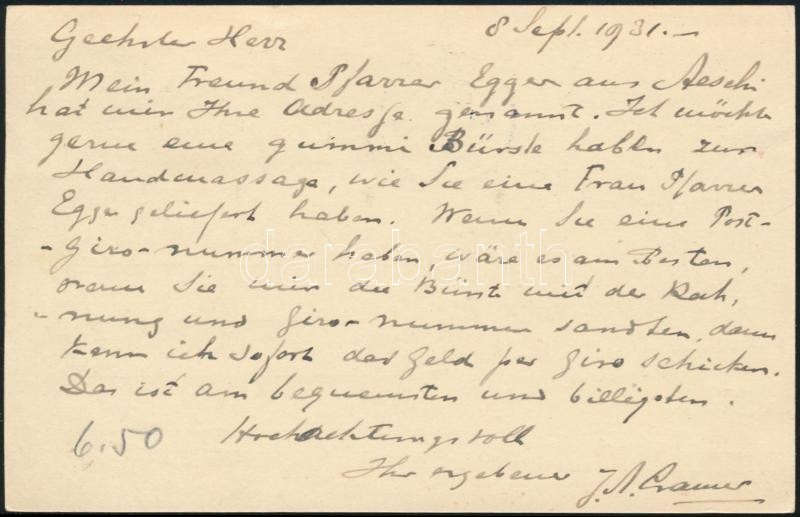 8 Sept. 1931.—
Geehrter Herr
Mein Freund Pfarrer Egger aus Aeschi
hat mir Ihre Adresse genannt. Ich möchte
gerne eine gummi Bürste haben zur
Handmassage, wie Sie eine Frau Pfarrer
Egger geliefert haben. Wenn Sie eine Post-
-Giro-nummer haben, wäre es am Besten,
wenn Sie mir die Bürste mit der Rech-
-nung und Giro-nummer sandten, dann
kann ich sofort das Geld per Giro schicken.
Das ist am bequemsten und billigsten.
Hochachtungsvoll
6.50
Ihr ergebener J. A. Cramer
darabanth